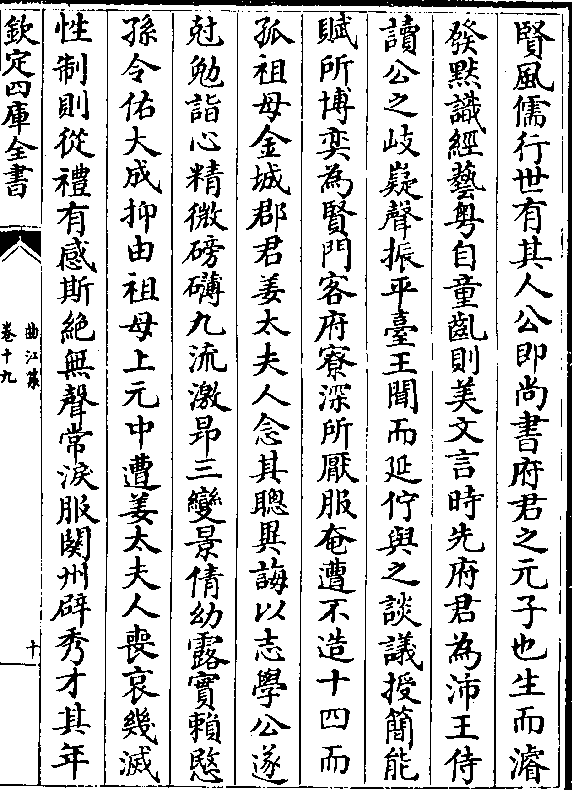 賢風儒行世有其人公即尚書府君之元子也生而濬
發黙識經藝粤自童齔則美文言時先府君為沛王侍
讀公之岐嶷聲振平臺王聞而延佇與之談議授簡能
賦所博奕為賢門客府寮深所厭服奄遭不造十四而
孤祖母金城郡君姜太夫人念其聰異誨以志學公遂
尅勉詣心精微磅礴九流激昻三變景倩幼露實賴愍
孫令佑大成抑由祖母上元中遭姜太夫人喪哀幾滅
性制則從禮有感斯絶無聲常淚服闋州辟秀才其年
欽定四庫全書
曲江集
卷十九
十